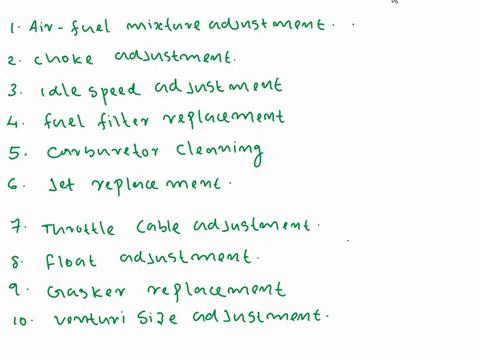 1. Air-fuel mixture adjustment.
2. choke adjustment.
3. Idle speed adjustment
4. fuel filter replacement
5. Carburetor cleaning
6. Jet replacement.
7. Throttle cable adjustment.
8. float adjustment.
9. Gasker replacement
10. venturi size adjustment.